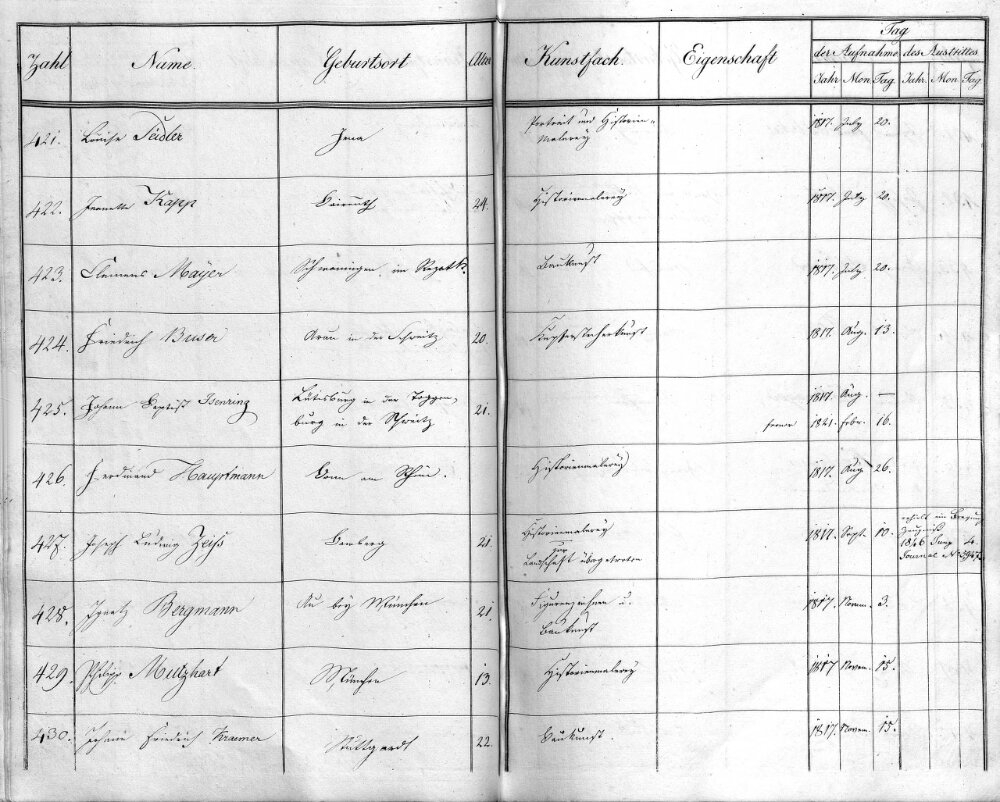 Tag
Zahl Name. Geburtsort Alter Kunstfach. Eigenschaft der Aufnahme des Austrittes
Jahr Mon Tag Jahr. Mon Tag
421. Louise Seidler Jena Portrait und Historien= 1817. July 20.
Malerey
422. Jeanette Kapp Baireuth 24. Historienmalerey 1817. July 20.
423. Clemens Mayer Schwaningen im Rezatk. Baukunst 1817. July 20.
424. Friedrich Buser Arau in der Schweitz 20. Kupferstecherkunst 1817. Aug. 13.
425. Johann Baptist Isenring Lutisburg in der Toggen, 21. 1817. Aug. —
burg in der Schweitz ferner 1821. febr. 16.
426. Ferdinand Hauptmann Bonn am Rhein. Historienmalerey 1817. Aug 26.
427. Joseph Ludwig Zeiß Bamberg 21. Historienmalerey 1817. Sept. 10. erhielt ein
zur Zeugniß
Landschaft übergetretten 1846 4.
Journal No
428. Ignatz Bergmann Au bey München 21. Figurenzeichnen u. 1817. Novem. 3.
Baukunst
429. Philipp Mutzhart München 13. Historienmalerey 1817 Novem. 15.
430. Johann Friedrich Kraemer Stuttgardt 22. Baukunst. 1817. Novem. 15.